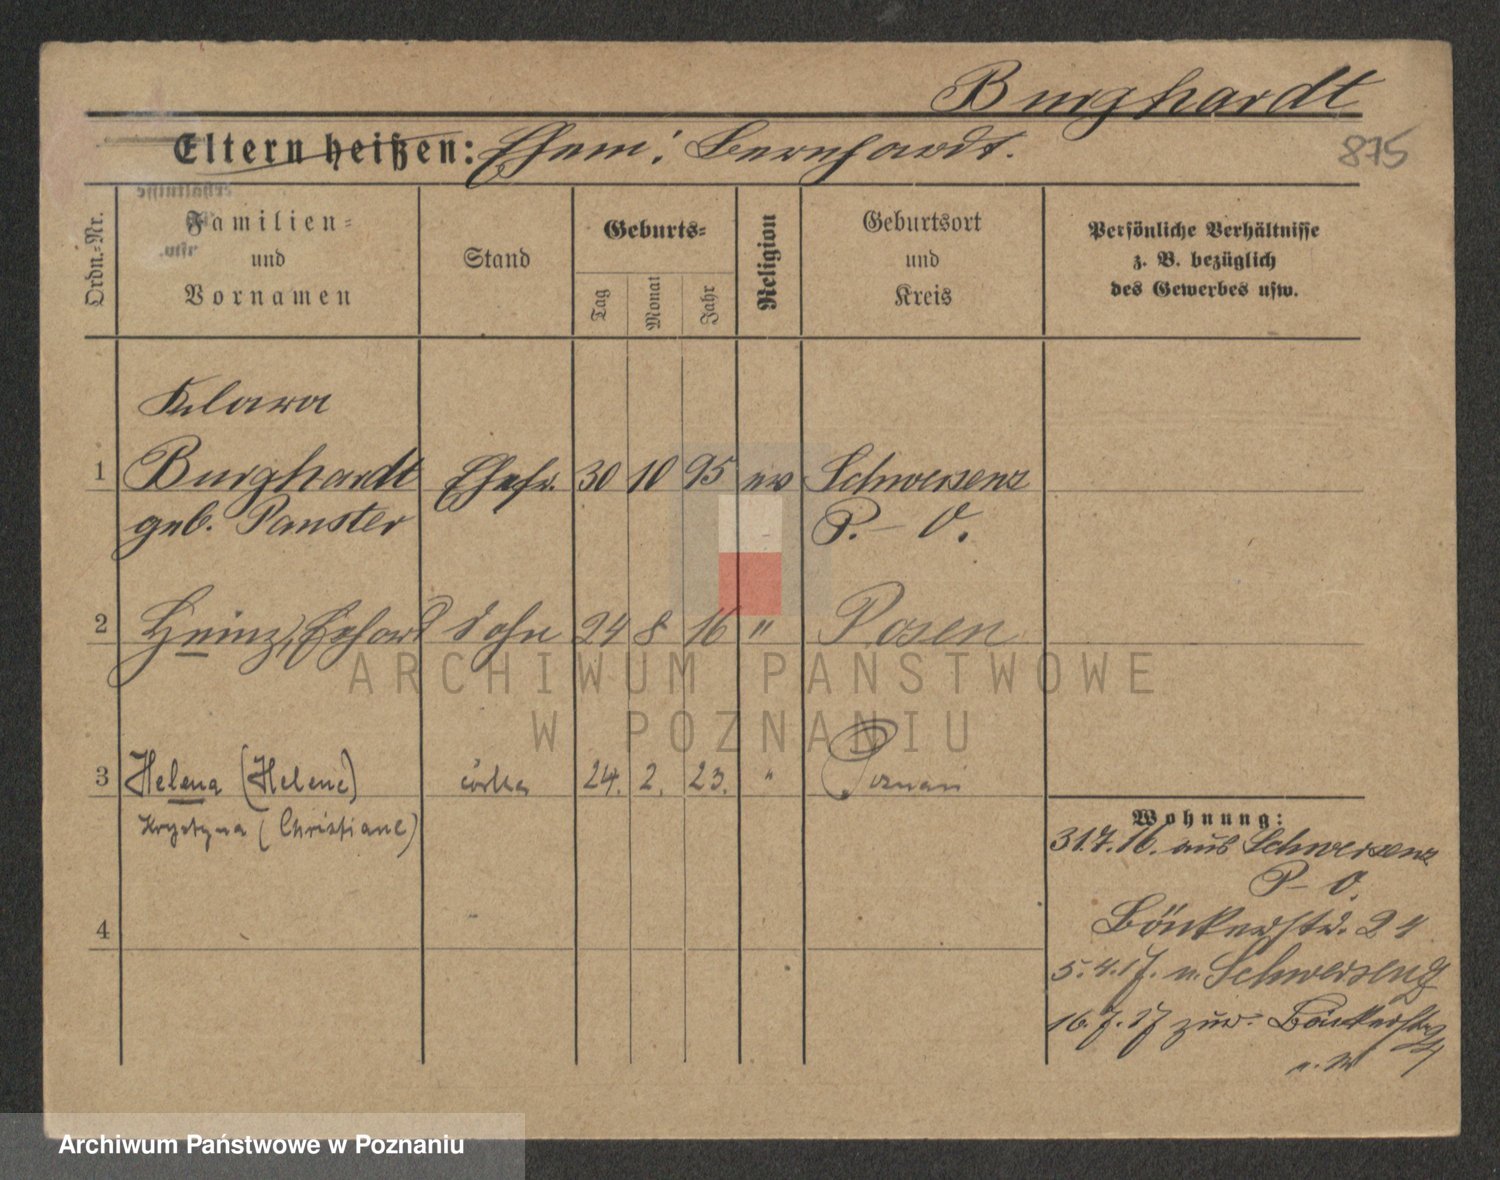 Burghardt
875
Eltern heißen: Ehem: Bernhardt.
Ordn.-Nr.
Familien-
und
Vornamen
Stand
Geburts-
Tag
Monat
Jahr
Religion
Geburtsort
und
Kreis
Persönliche Verhältnisse
z. B. bezüglich
des Gewerbes usw.
Klara
1 Burghardt Ehefr. 30 10 95 ev Schwersenz
geb. Panster P.-O.
2 Heinz, Erhard Sohn 24 8 16 " Posen
3 Helena (Helene) córka 24. 2. 23. " Poznań
Krystyna (Christiane)
4
Wohnung:
31.7.16. aus Schwersenz
P-O.
Bönkerstr. 24
5.4.17. n. Schwersenz
16.7.17 zur. Bönkerstr.
24
ARCHIWUM PAŃSTWOWE
W POZNANIU
Archiwum Państwowe w Poznaniu